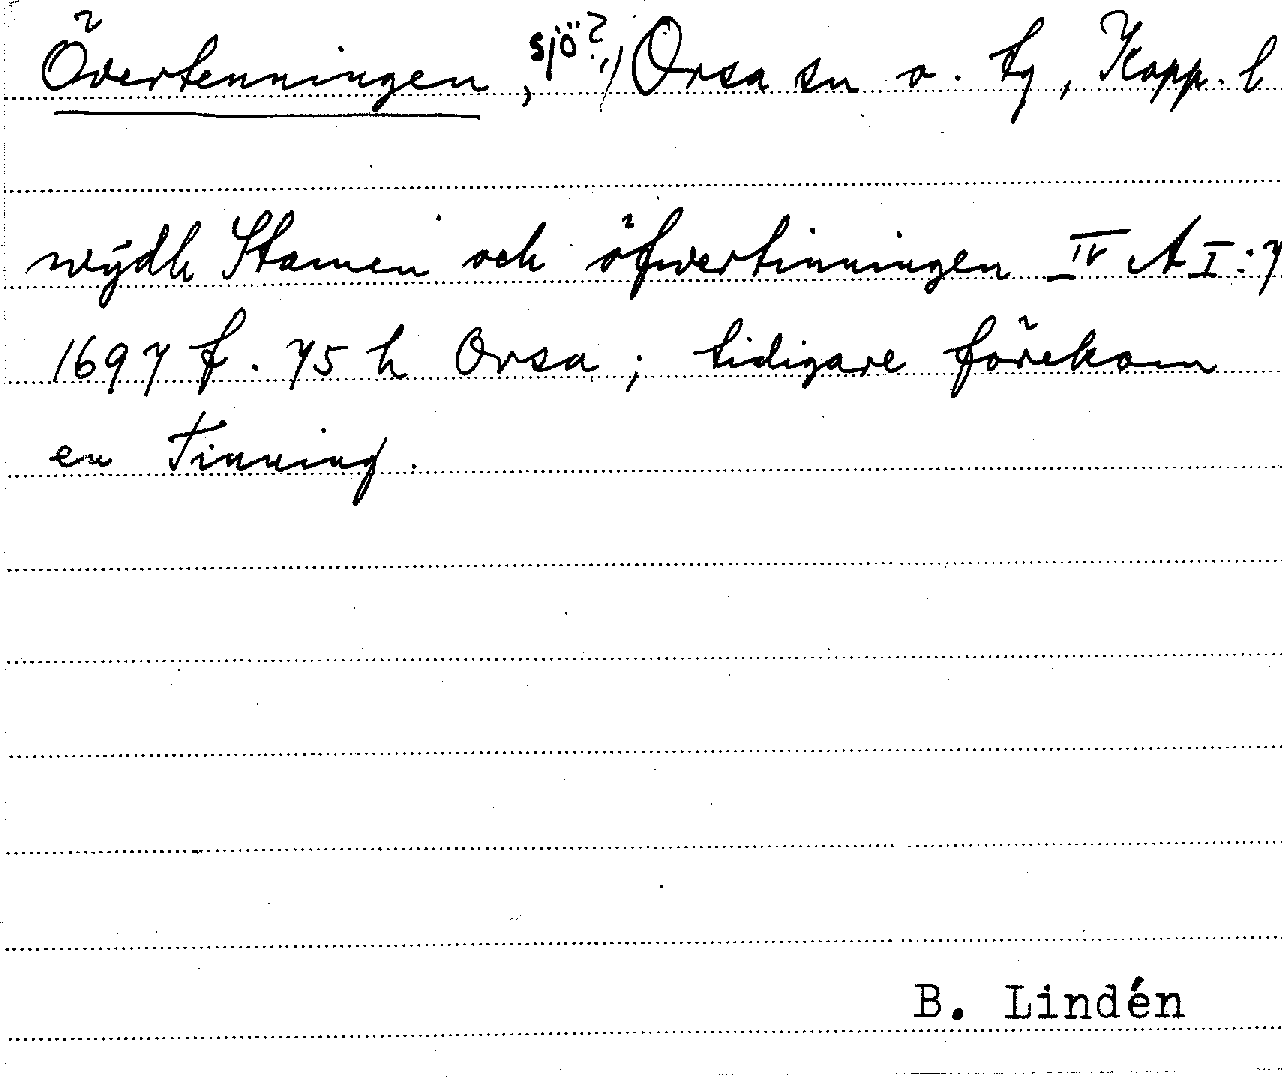 Övertenningen, sjö?, Orsa sn o. tg, Kopp. l
wydh Stamen och öfwertinningen IV A I:7
1697 f. 75 h Orsa; tidigare förekom
en Tinning.
B. Lindén